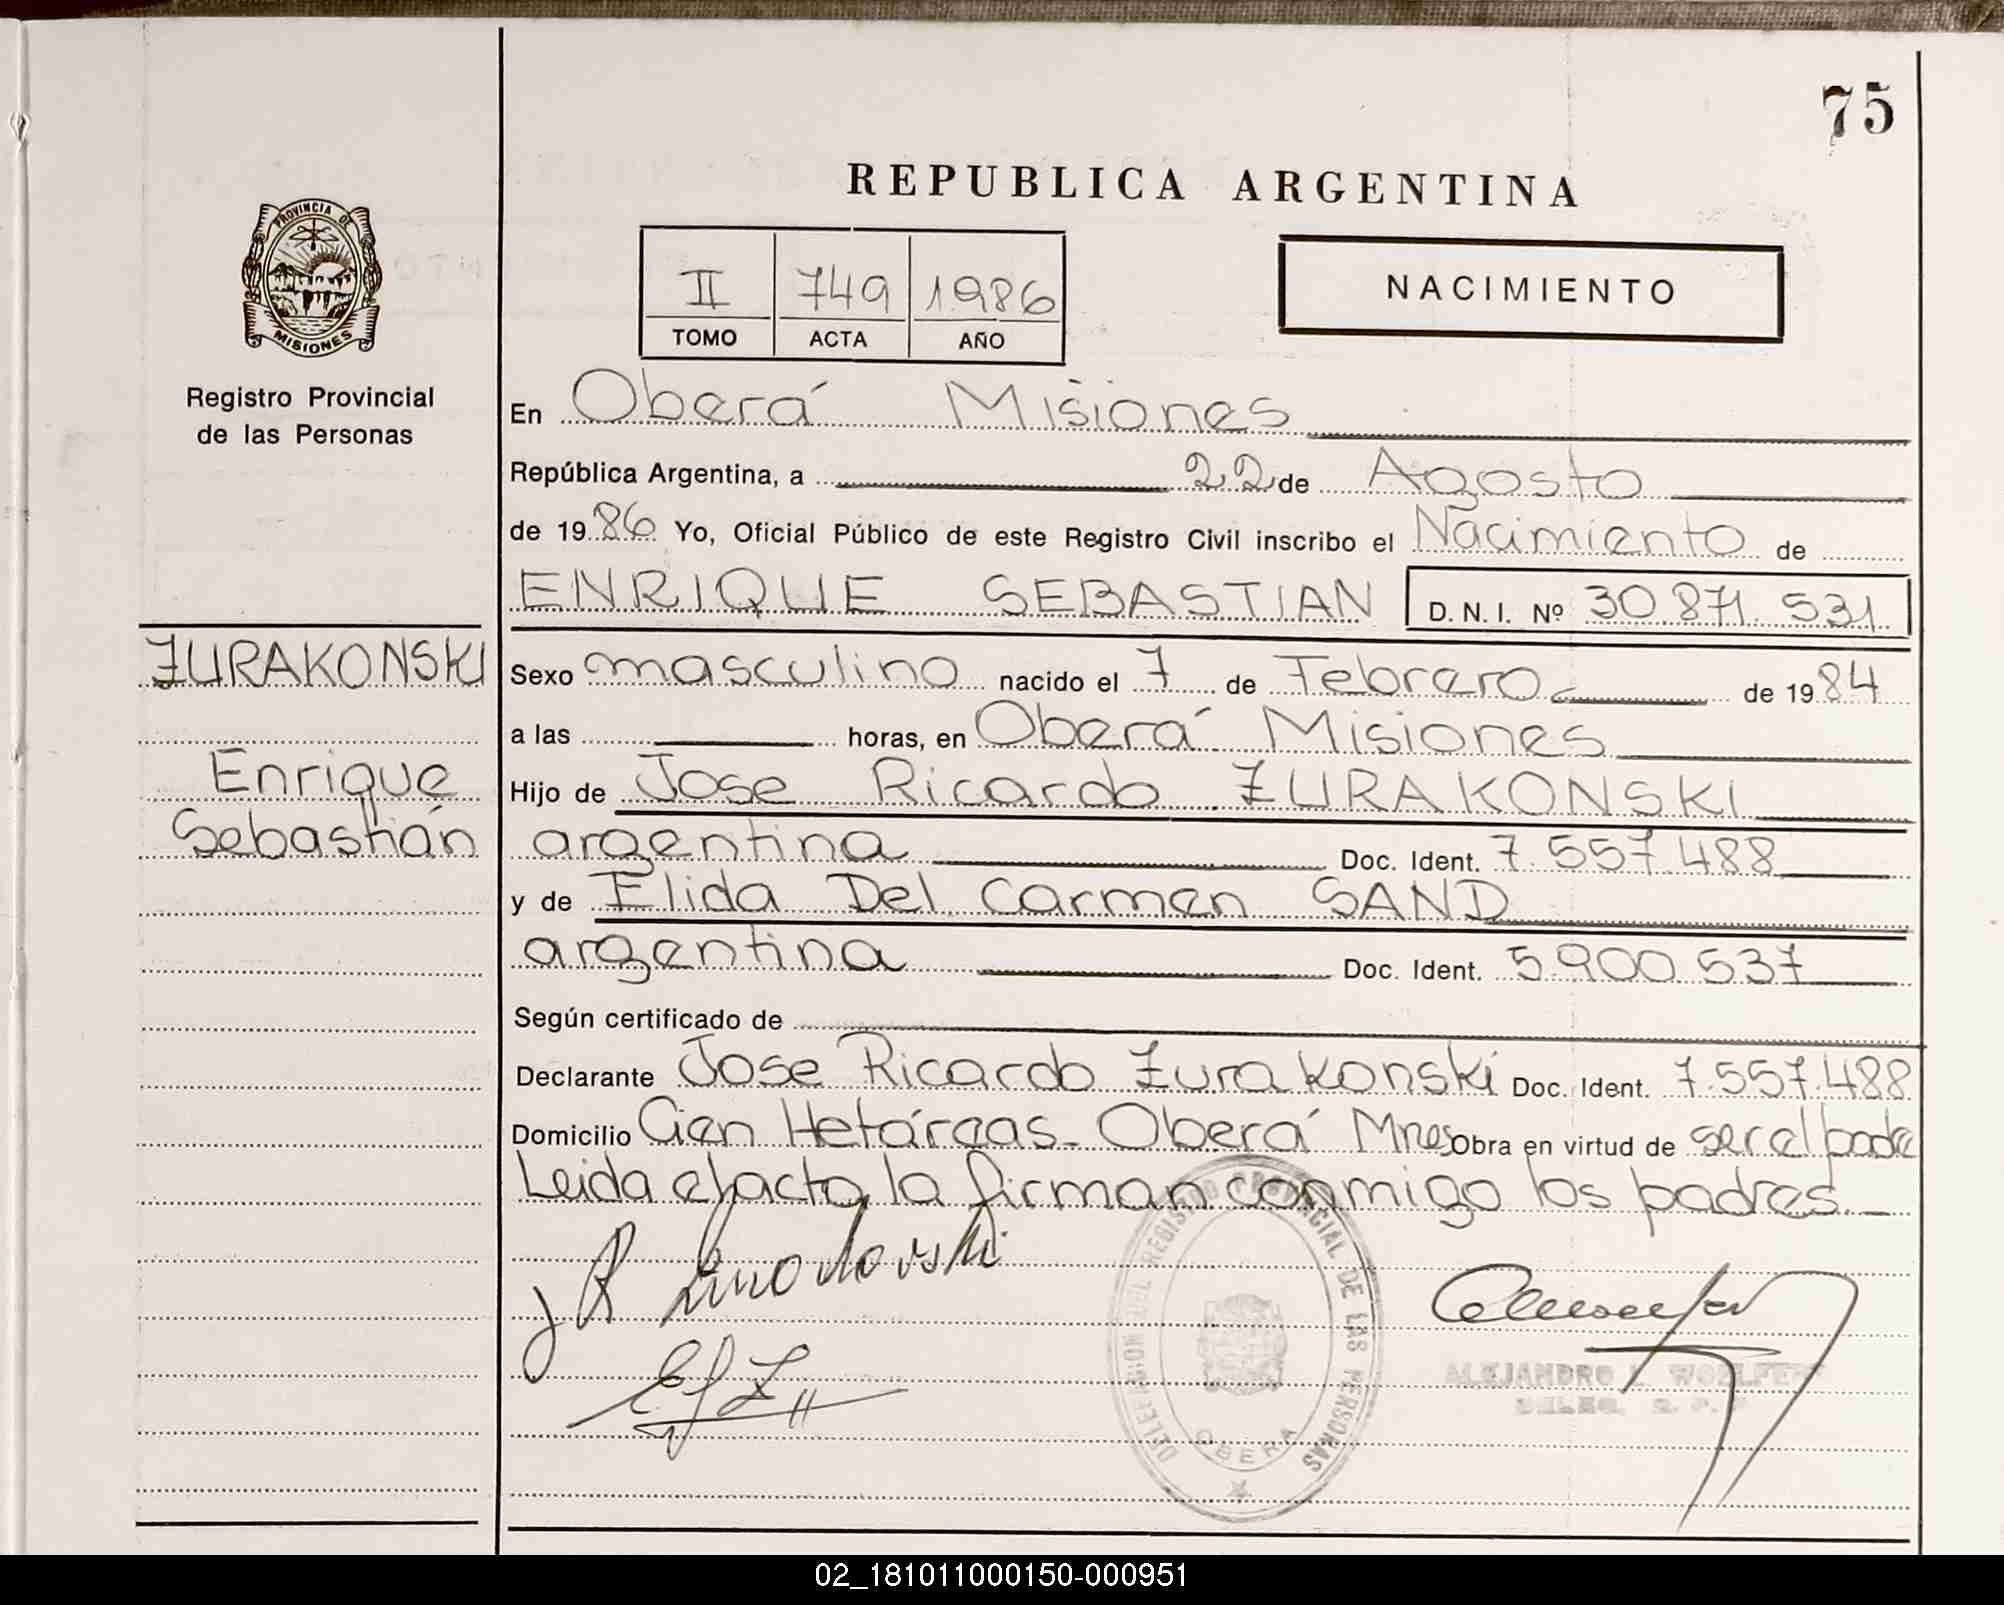 75
REPUBLICA ARGENTINA
PROVINCIA DE
MISIONES
II 749 1986
TOMO ACTA AÑO
NACIMIENTO
Registro Provincial
de las Personas
En Oberá Misiones
República Argentina, a 22 de Agosto
de 1986 Yo, Oficial Público de este Registro Civil inscribo el Nacimiento de
ENRIQUE SEBASTIAN D. N. I. Nº 30.871.531
ZURAKONSKI
Enrique
Sebastián
Sexo masculino nacido el 7 de Febrero de 1984
a las horas, en Oberá Misiones
Hijo de Jose Ricardo ZURAKONSKI
argentina Doc. Ident. 7.557.488
y de Elida Del Carmen SAND
argentina Doc. Ident. 5.900.537
Según certificado de
Declarante Jose Ricardo Zurakonski Doc. Ident. 7.557.488
Domicilio Cien Hetáreas - Oberá Mnes Obra en virtud de ser el padre
Leida el acta, la firman conmigo los padres.
DELEGACION DEL REGISTRO PROVINCIAL DE LAS PERSONAS
OBERA
ALEJANDRO
02_181011000150-000951